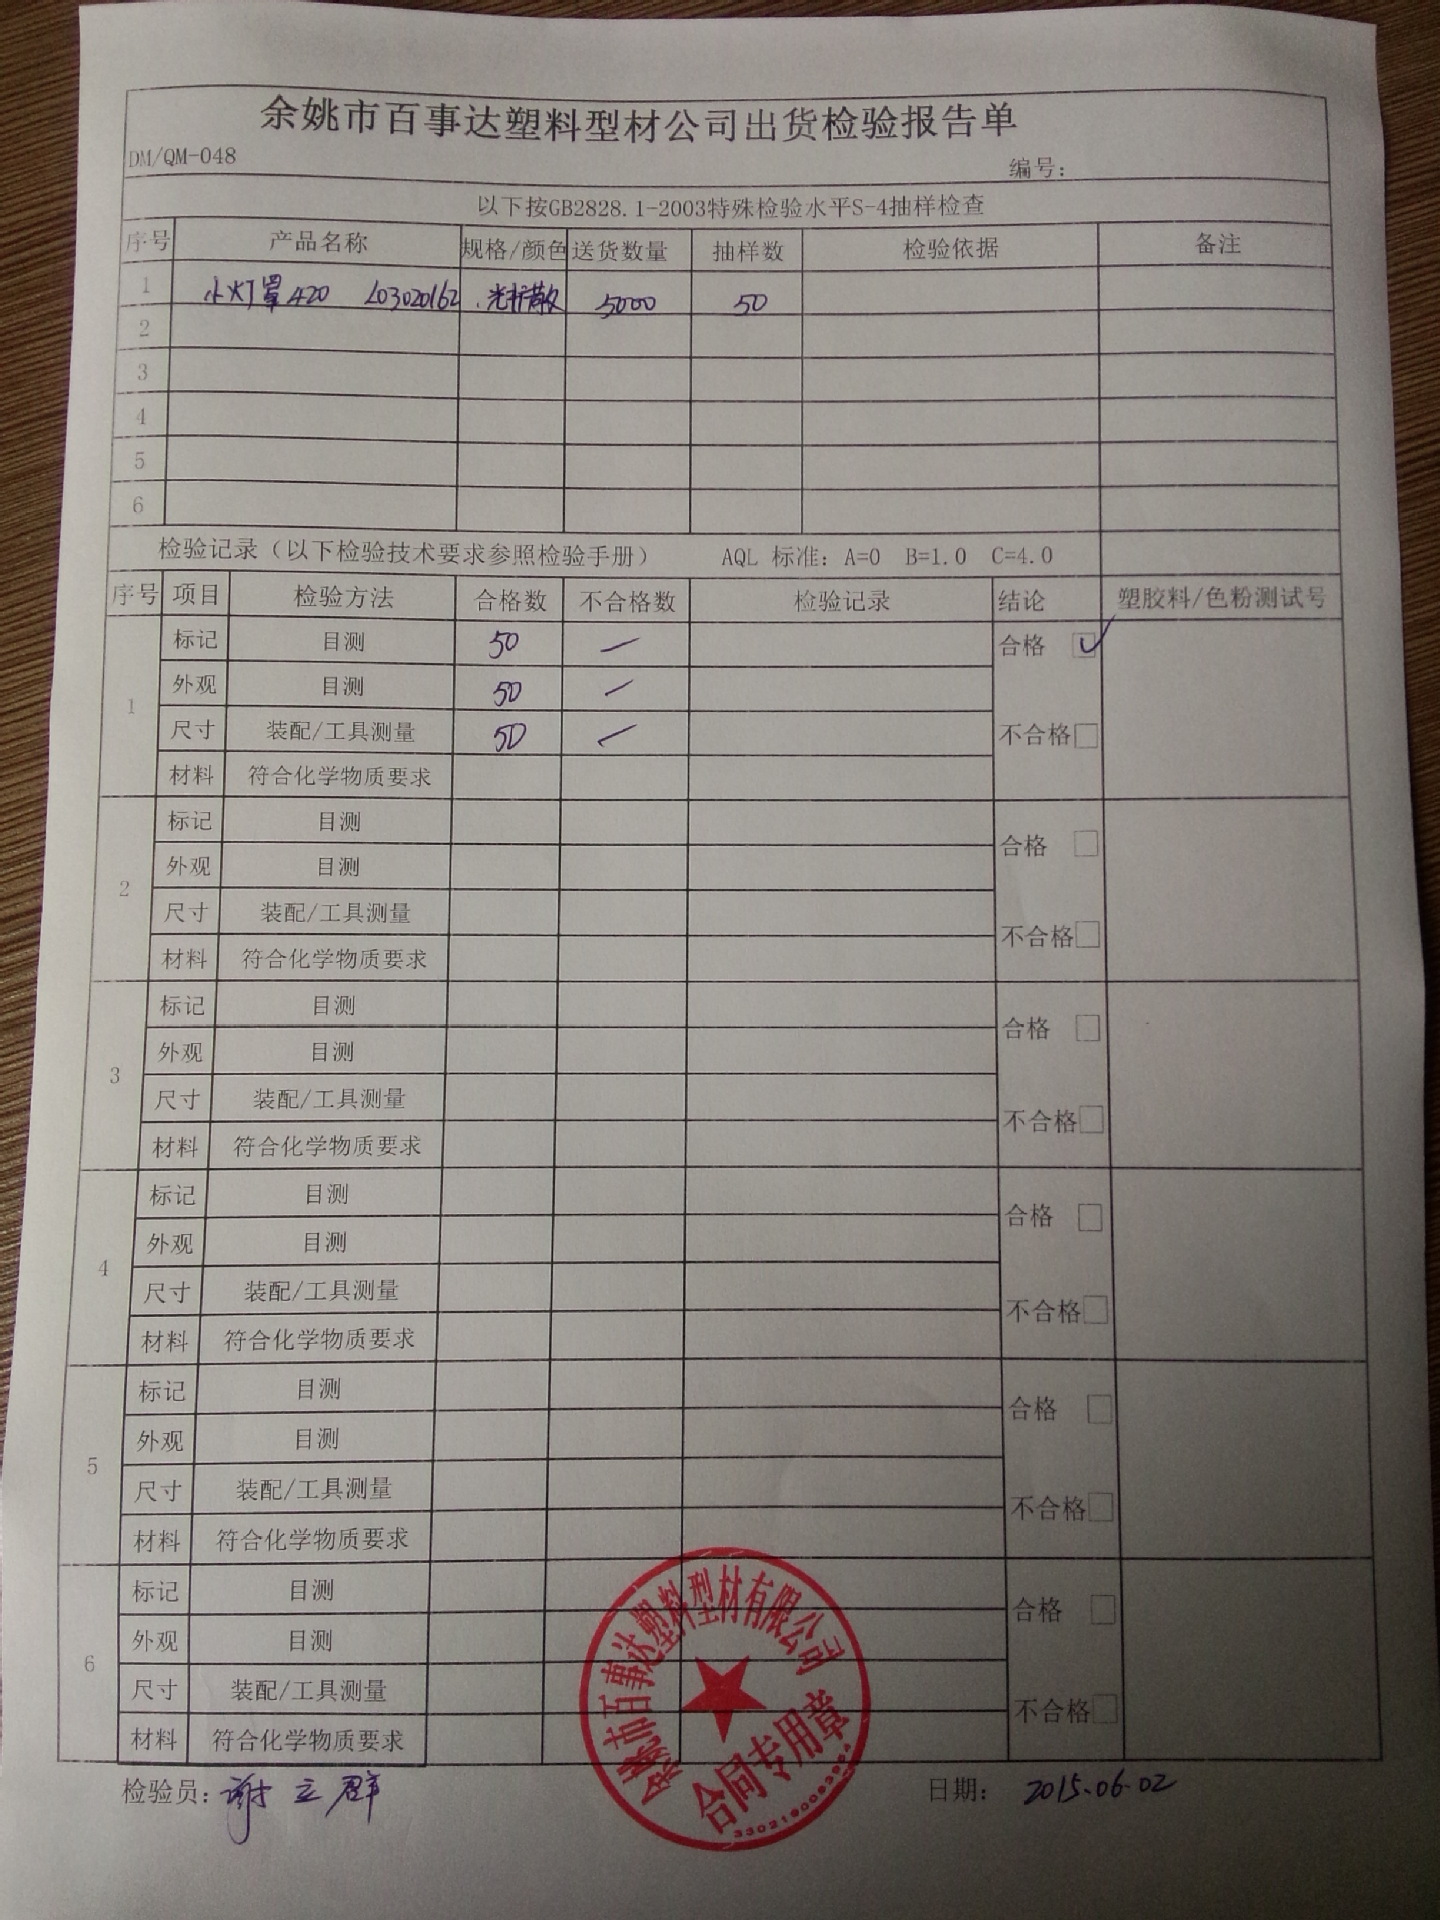 余姚市百事达塑料型材公司出货检验报告单
DM/QM-048
编号：
以下按GB2828.1-2003特殊检验水平S-4抽样检查
序号 产品名称 规格/颜色 送货数量 抽样数 检验依据 备注
1 小灯罩420 L03020162 光扩散 5000 50
2
3
4
5
6
检验记录（以下检验技术要求参照检验手册） AQL 标准：A=0 B=1.0 C=4.0
序号 项目 检验方法 合格数 不合格数 检验记录 结论 塑胶料/色粉测试号
标记 目测 50 / 合格 ✓
外观 目测 50 /
1
尺寸 装配/工具测量 50 / 不合格
材料 符合化学物质要求
标记 目测
合格
外观 目测
2
尺寸 装配/工具测量
不合格
材料 符合化学物质要求
标记 目测
合格
外观 目测
3
尺寸 装配/工具测量
不合格
材料 符合化学物质要求
标记 目测
合格
外观 目测
4
尺寸 装配/工具测量
不合格
材料 符合化学物质要求
标记 目测
合格
外观 目测
5
尺寸 装配/工具测量
不合格
材料 符合化学物质要求
标记 目测
合格
外观 目测
6
尺寸 装配/工具测量
不合格
材料 符合化学物质要求
余姚市百事达塑料型材有限公司
合同专用章
检验员：谢立群 日期： 2015.06.02